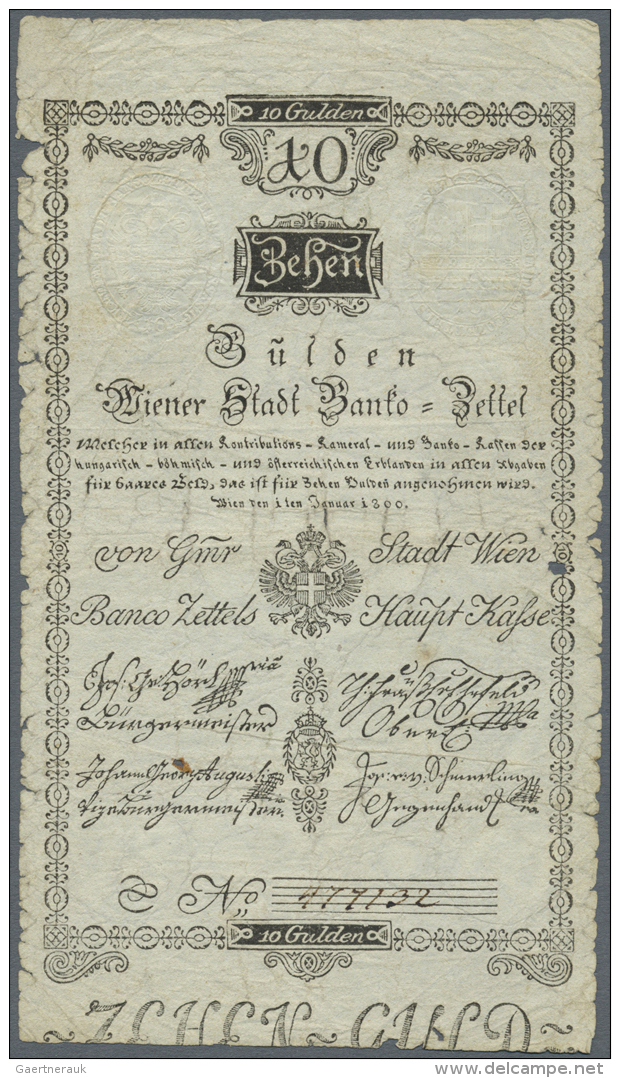 10 Gulden
10
Zehen
Gulden
Wiener Stadt Banko = Zettel
Welcher in allen Kontributions - Kameral - und Banko - Kassen der
hungarisch - böhmisch - und österreichischen Erblanden in allen Abgaben
für baares Geld, das ist für Zehen Gulden angenohmen wird.
Wien den 1ten Januar 1800.
von Gm̃r Stadt Wien
Banco Zettels Haupt Kasse
Jos: Bürgermeister
Ober
Johann Georg Augusti Vizebürgermeister
Jos: v: Schmerling Gegenhand
No 477132
10 Gulden
ZEHEN GULD
Gaertnerauk
www.delcampe.net